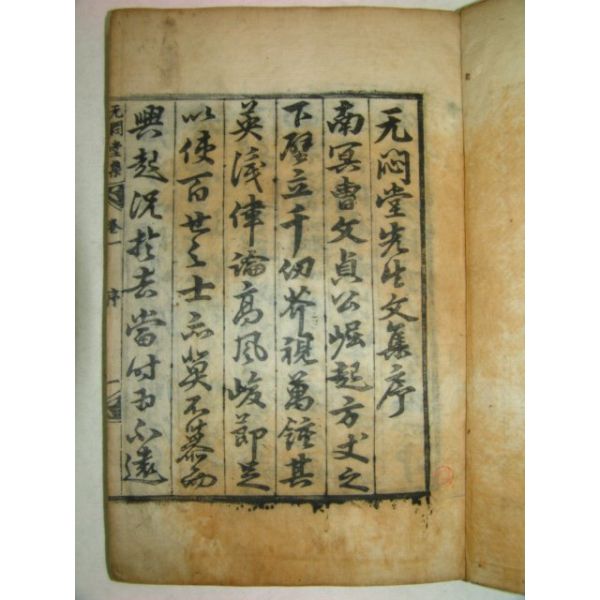 无悶堂先生文集序
南冥曺文貞公崛起方丈之
下壁立千仞芥視萬鍾其
英識偉論高風峻節足
以使百世之士亦莫不慕而
興起況於去當時為不遠
无悶堂集 卷一 序 一